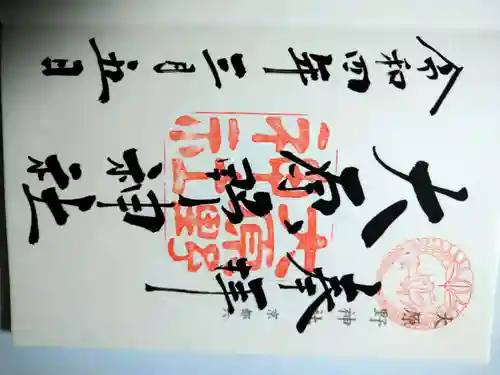 大原野神社
京都
奉拝
大原野神社
大原野
神社
令和四年三月五日